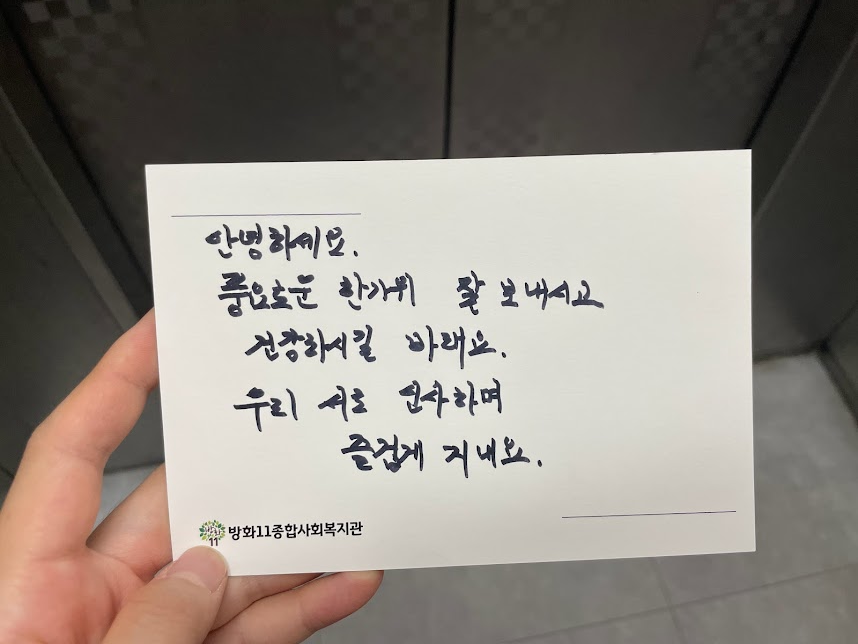 안녕하세요.
풍요로운 한가위 잘 보내시고
건강하시길 바래요.
우리 서로 인사하며
즐겁게 지내요.
11 방화11종합사회복지관